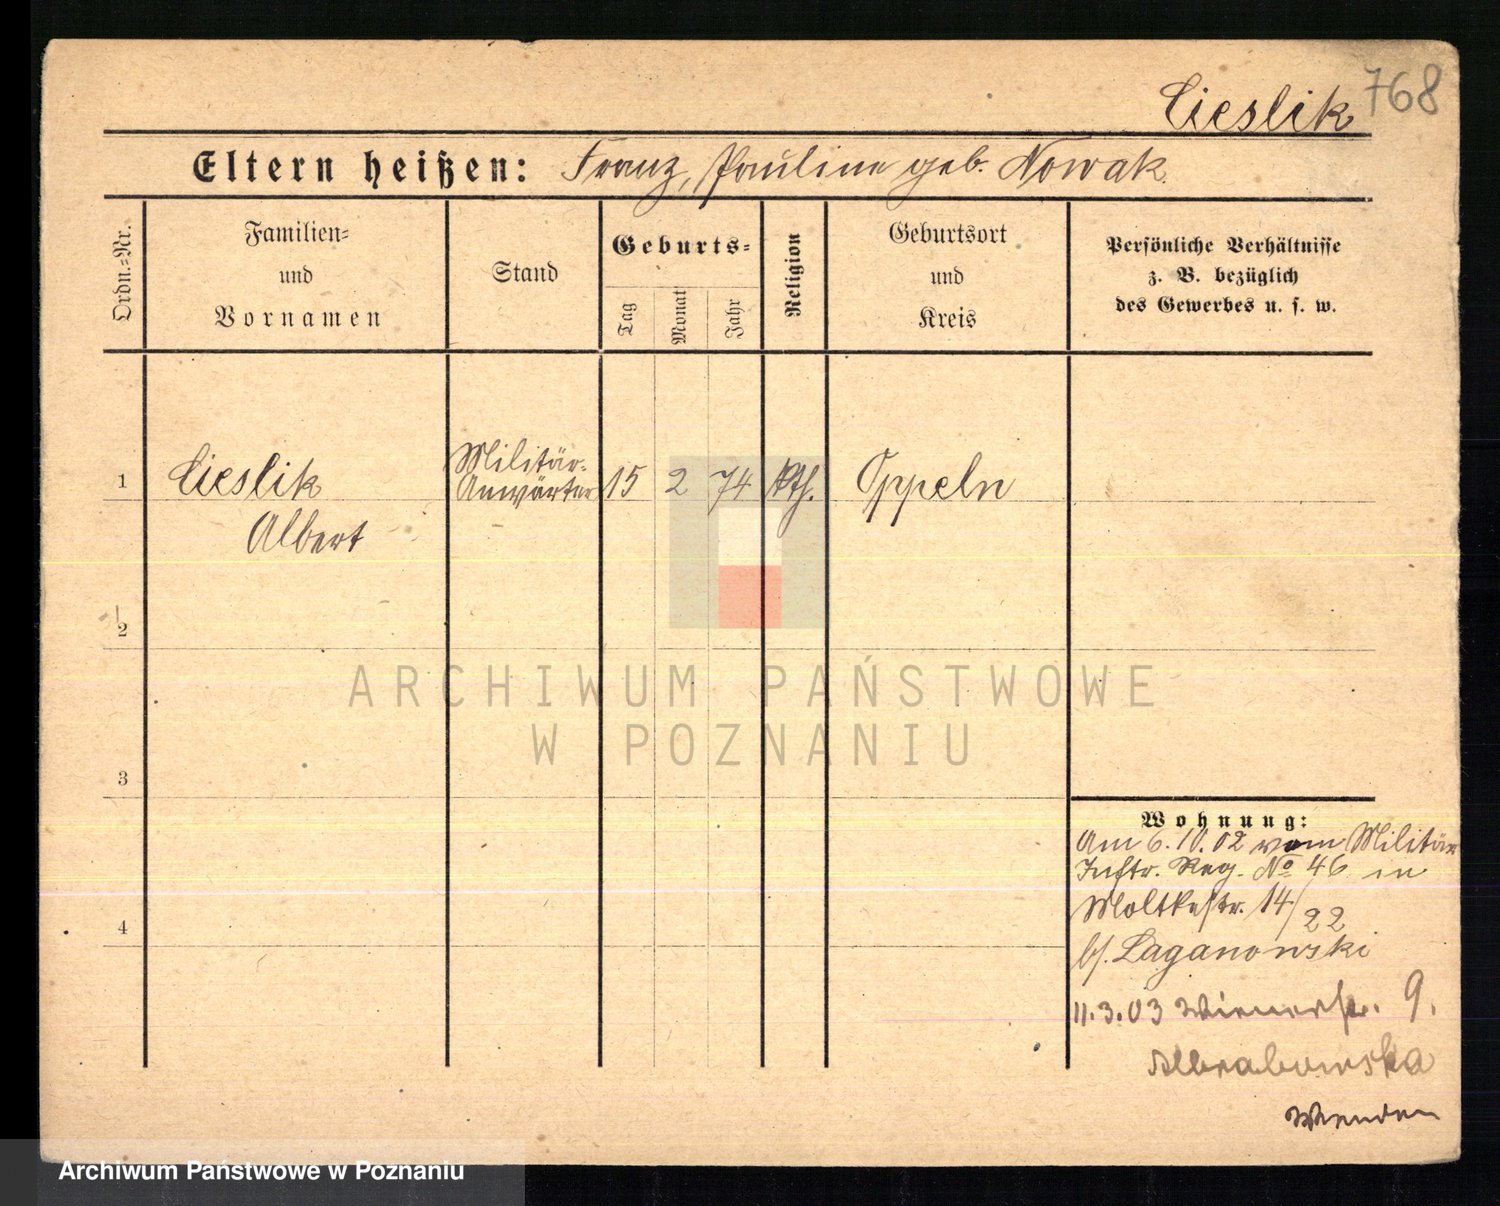 Cieslik 768
Eltern heißen: Franz, Pauline geb. Nowak
Ordn.=Nr.
Familien=
und
Vornamen
Stand
Geburts=
Tag
Monat
Jahr
Religion
Geburtsort
und
Kreis
Persönliche Verhältnisse
z. B. bezüglich
des Gewerbes u. s. w.
1 Cieslik Militär= 15 2 74 kth. Oppeln
Albert Anwärter
2
3
4
Wohnung:
Am 6.10.02 vom Militär
Inftr. Reg. No 46 in
Moltkestr. 14/22
bs. Laganowski
11.3.03 Wienerstr. 9.
Wenden
ARCHIWUM PAŃSTWOWE
W POZNANIU
Archiwum Państwowe w Poznaniu